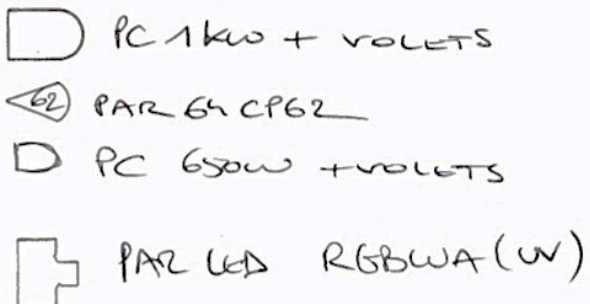 PC 1kW + VOLETS
62 PAR 64 CP62
PC 650W + VOLETS
PAR LED RGBWA (UV)